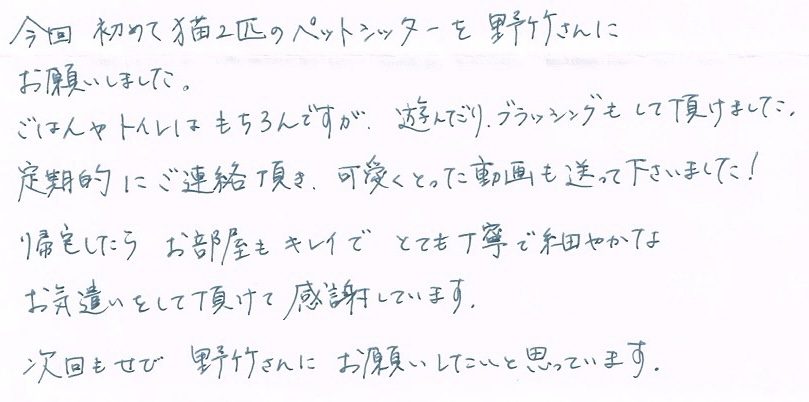 今回 初めて猫2匹のペットシッターを 野竹さんに
お願いしました。
ごはんやトイレは もちろんですが、遊んだり、ブラッシングも して頂けました。
定期的に ご連絡頂き、可愛くとった動画も送って下さいました!
帰宅したら お部屋も キレイで とても丁寧で細やかな
お気遣いをして頂けて 感謝しています。
次回もぜひ 野竹さんに お願いしたいと思っています。